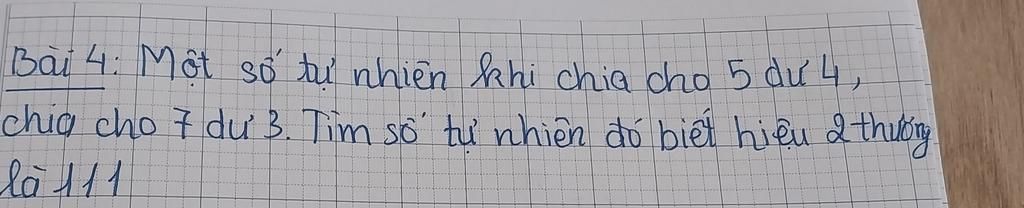 Bài 4: Một số tự nhiên khi chia cho 5 dư 4,
chia cho 7 dư 3. Tìm số tự nhiên đó biết hiệu 2 thương
là 111